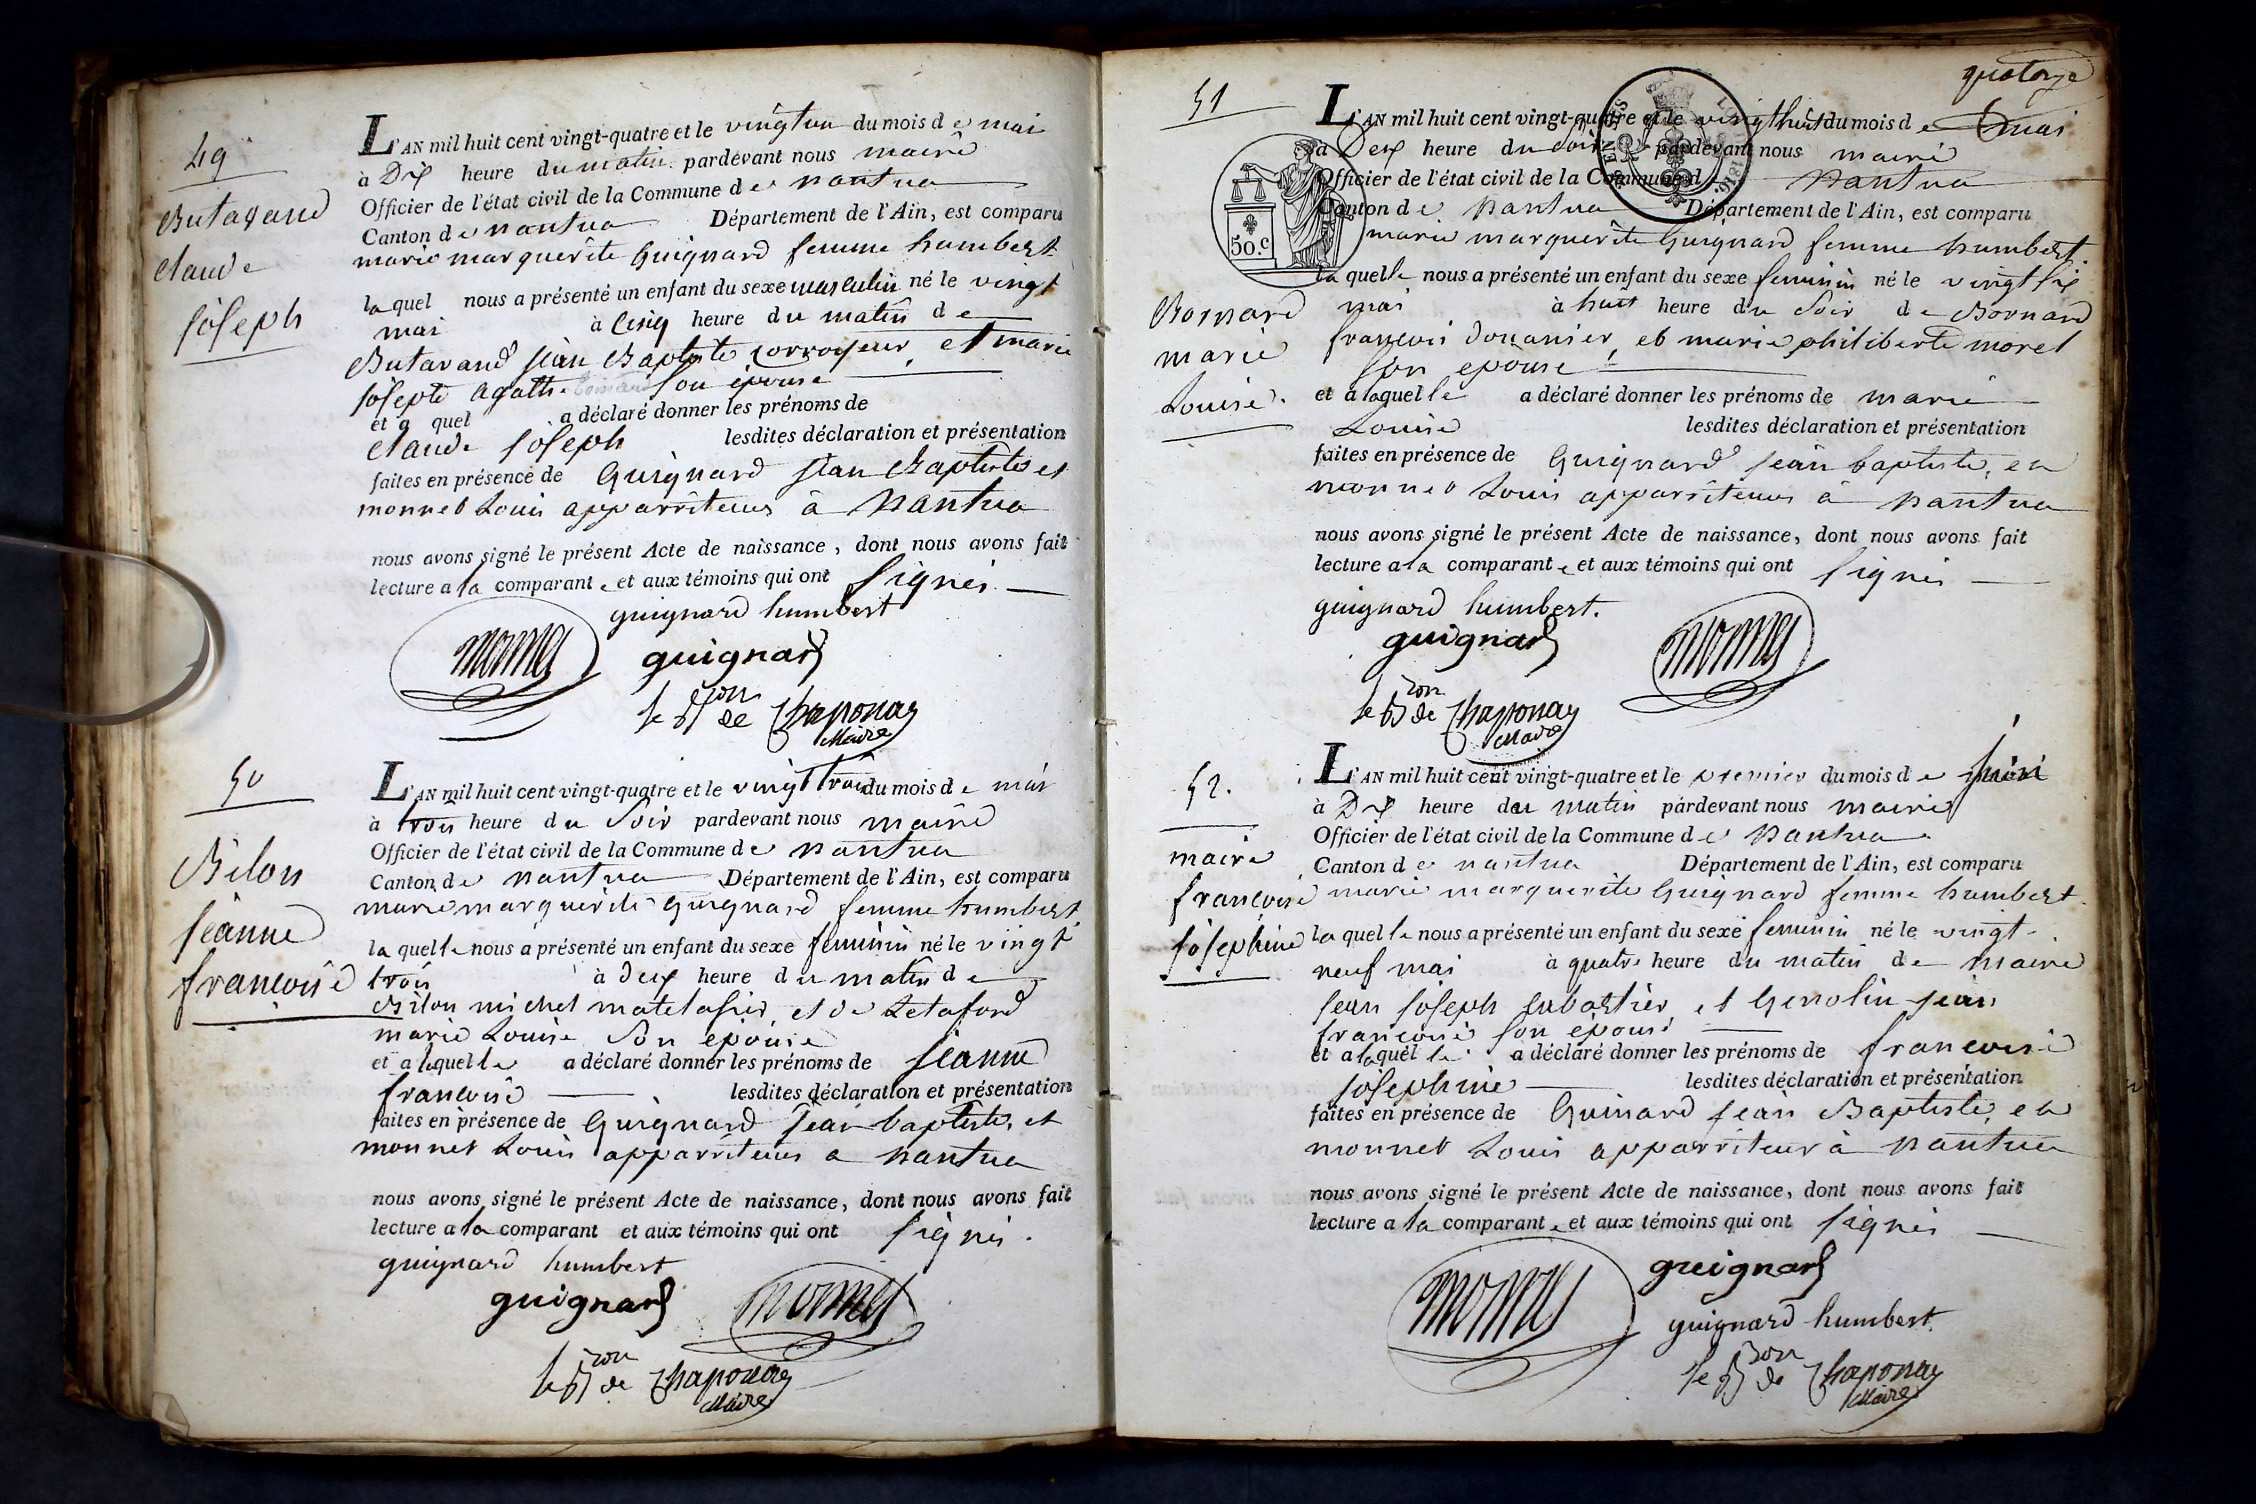 49
Butavand
Claude
Joseph
L'AN mil huit cent vingt-quatre et le vingt un du mois de mai
à Dix heure du matin pardevant nous maire
Officier de l'état civil de la Commune de nantua
Canton de nantua Département de l'Ain, est comparu
marie marguerite Guignard femme humbert
laquel nous a présenté un enfant du sexe masculin né le vingt
mai à cinq heure du matin de
Butavand jean Baptiste corroyeur et marie
josepte agathe son épouse
et a quel a déclaré donner les prénoms de
claude joseph lesdites déclaration et présentation
faites en présence de Guignard jean Baptiste et
monnet Louis apparriteurs à nantua
nous avons signé le présent Acte de naissance, dont nous avons fait
lecture a la comparante et aux témoins qui ont signés
guignard humbert
monnet guignard
le Bon de Chaponay
Maire
50
Bilon
jeanne
francoise
L'AN mil huit cent vingt-quatre et le vingt trois du mois de mai
à trois heure du soir pardevant nous maire
Officier de l'état civil de la Commune de nantua
Canton de nantua Département de l'Ain, est comparu
marie marguerite guignard femme humbert
laquelle nous a présenté un enfant du sexe feminin né le vingt
trois à deux heure du matin de
Bilon michel matelasier et de Letaford
marie Louise son epouse
et a laquelle a déclaré donner les prénoms de jeanne
francoise lesdites déclaration et présentation
faites en présence de Guignard jean baptiste, et
monnet Louis apparriteurs a nantua
nous avons signé le présent Acte de naissance, dont nous avons fait
lecture a la comparant et aux témoins qui ont signés.
guignard humbert
guignard monnet
le Bon de Chaponay
Maire
quatorze
51
Bornard
marie
Louise.
50.C
L'AN mil huit cent vingt-quatre et le vingt huit du mois de mai
à Deux heure du soir pardevant nous maire
Officier de l'état civil de la Commune d nantua
Canton de nantua Département de l'Ain, est comparu
marie marguerite Guignard femme humbert.
laquelle nous a présenté un enfant du sexe feminin né le vingt six
mai à huit heure du soir de Bornard
francois douanier, et marie philiberte morel
son epouse
et a laquelle a déclaré donner les prénoms de marie
Louise lesdites déclaration et présentation
faites en présence de Guignard jean baptiste, et
monnet Louis apparriteurs à nantua
nous avons signé le présent Acte de naissance, dont nous avons fait
lecture a la comparante et aux témoins qui ont signés
guignard humbert.
guignard monnet
le Bon de Chaponay
Maire
52.
maire
francoise
josephine
L'AN mil huit cent vingt-quatre et le premier du mois de juin
à Dix heure du matin pardevant nous maire
Officier de l'état civil de la Commune de nantua
Canton de nantua Département de l'Ain, est comparu
marie marguerite Guignard femme humbert.
laquelle nous a présenté un enfant du sexe feminin né le vingt-
neuf mai à quatre heure du matin de maire
jean joseph et Genolin jean
francoise son épouse
et a laquelle a déclaré donner les prénoms de francoise
josephine lesdites déclaration et présentation
faites en présence de Guinard jean Baptiste, et
monnet Louis apparriteur à nantua
nous avons signé le présent Acte de naissance, dont nous avons fait
lecture a la comparante et aux témoins qui ont signés
monnet guignard
guignard humbert.
le Bon de Chaponay
Maire